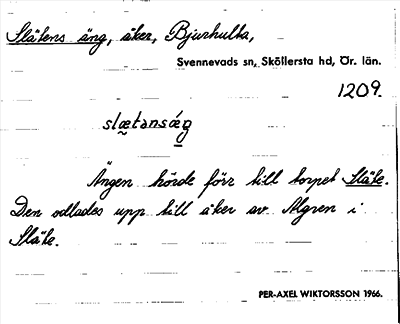 Slätens äng, åker, Bjurhulta,
Svennevads sn, Sköllersta hd, Ör. län.
1209.
slætansǽg
Ängen hörde förr till torpet Släte.
Den odlades upp till åker av Algren i
Släte.
PER-AXEL WIKTORSSON 1966.